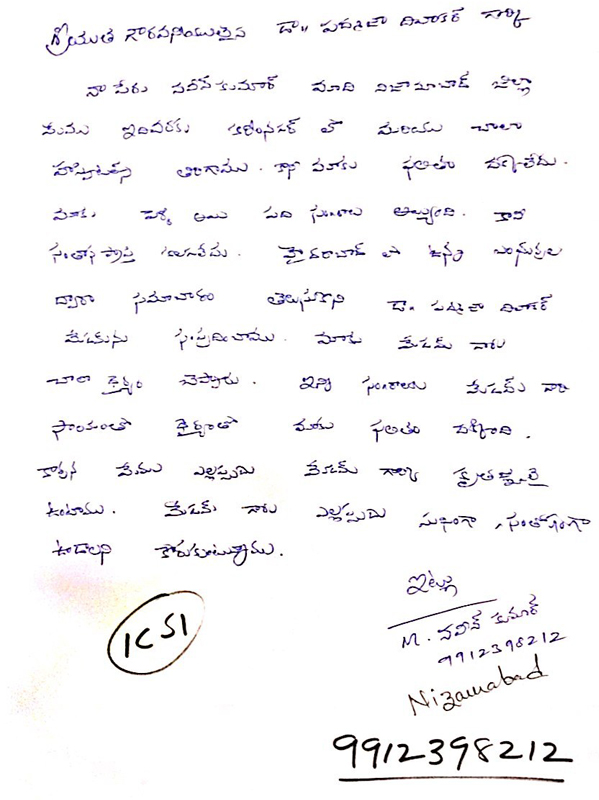 శ్రీయుత గౌరవనీయులైన డా॥ పద్మజా దివాకర్ గార్కి
నా పేరు నవీన్ కుమార్ మాది నిజామాబాద్ జిల్లా
మేము ఇదివరకు కరీంనగర్ లో మరియు చాలా
హాస్పిటల్స్ తిరిగాము. కానీ మాకు ఫలితం దక్కలేదు.
మాకు పెళ్ళి అయి పది సంరాలు అయ్యింది. కానీ
సంతాన ప్రాప్తి కలుగలేదు. హైదరాబాద్ లో ఉన్న బంధువుల
ద్వారా సమాచారం తెలుసుకొని డా. పద్మజా దివాకర్
మేడమ్‌ను సంప్రదించాము. మాకు మేడమ్ గారు
చాలా ధైర్యం చెప్పారు. ఇన్ని సంరాలకు మేడమ్ గారి
సాయంతో ధైర్యంతో మాకు ఫలితం దక్కింది.
కావున మేము ఎల్లప్పుడు మేడమ్ గార్కి కృతజ్ఞులై
ఉంటాము. మేడమ్ గారు ఎల్లప్పుడు సుఖంగా, సంతోషంగా
ఉండాలని కోరుకుంటున్నాము.
ఇట్లు
M. నవీన్ కుమార్
9912398212
Nizamabad
ICSI
9912398212